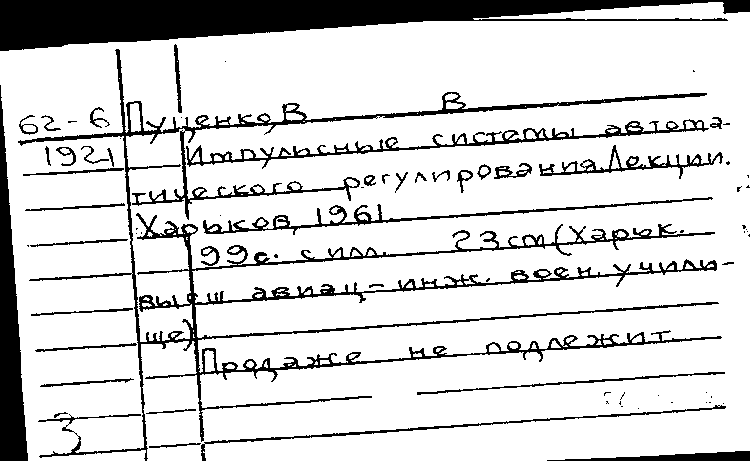 62-6 Пуценко, В В
1921 Импульсные системы автома-
тического регулирования. Лекции.
Харьков, 1961.
99с. с илл. 23 cm (Харьк.
высш авиац-инж. воен. учили-
ще).
Продаже не подлежит.
3